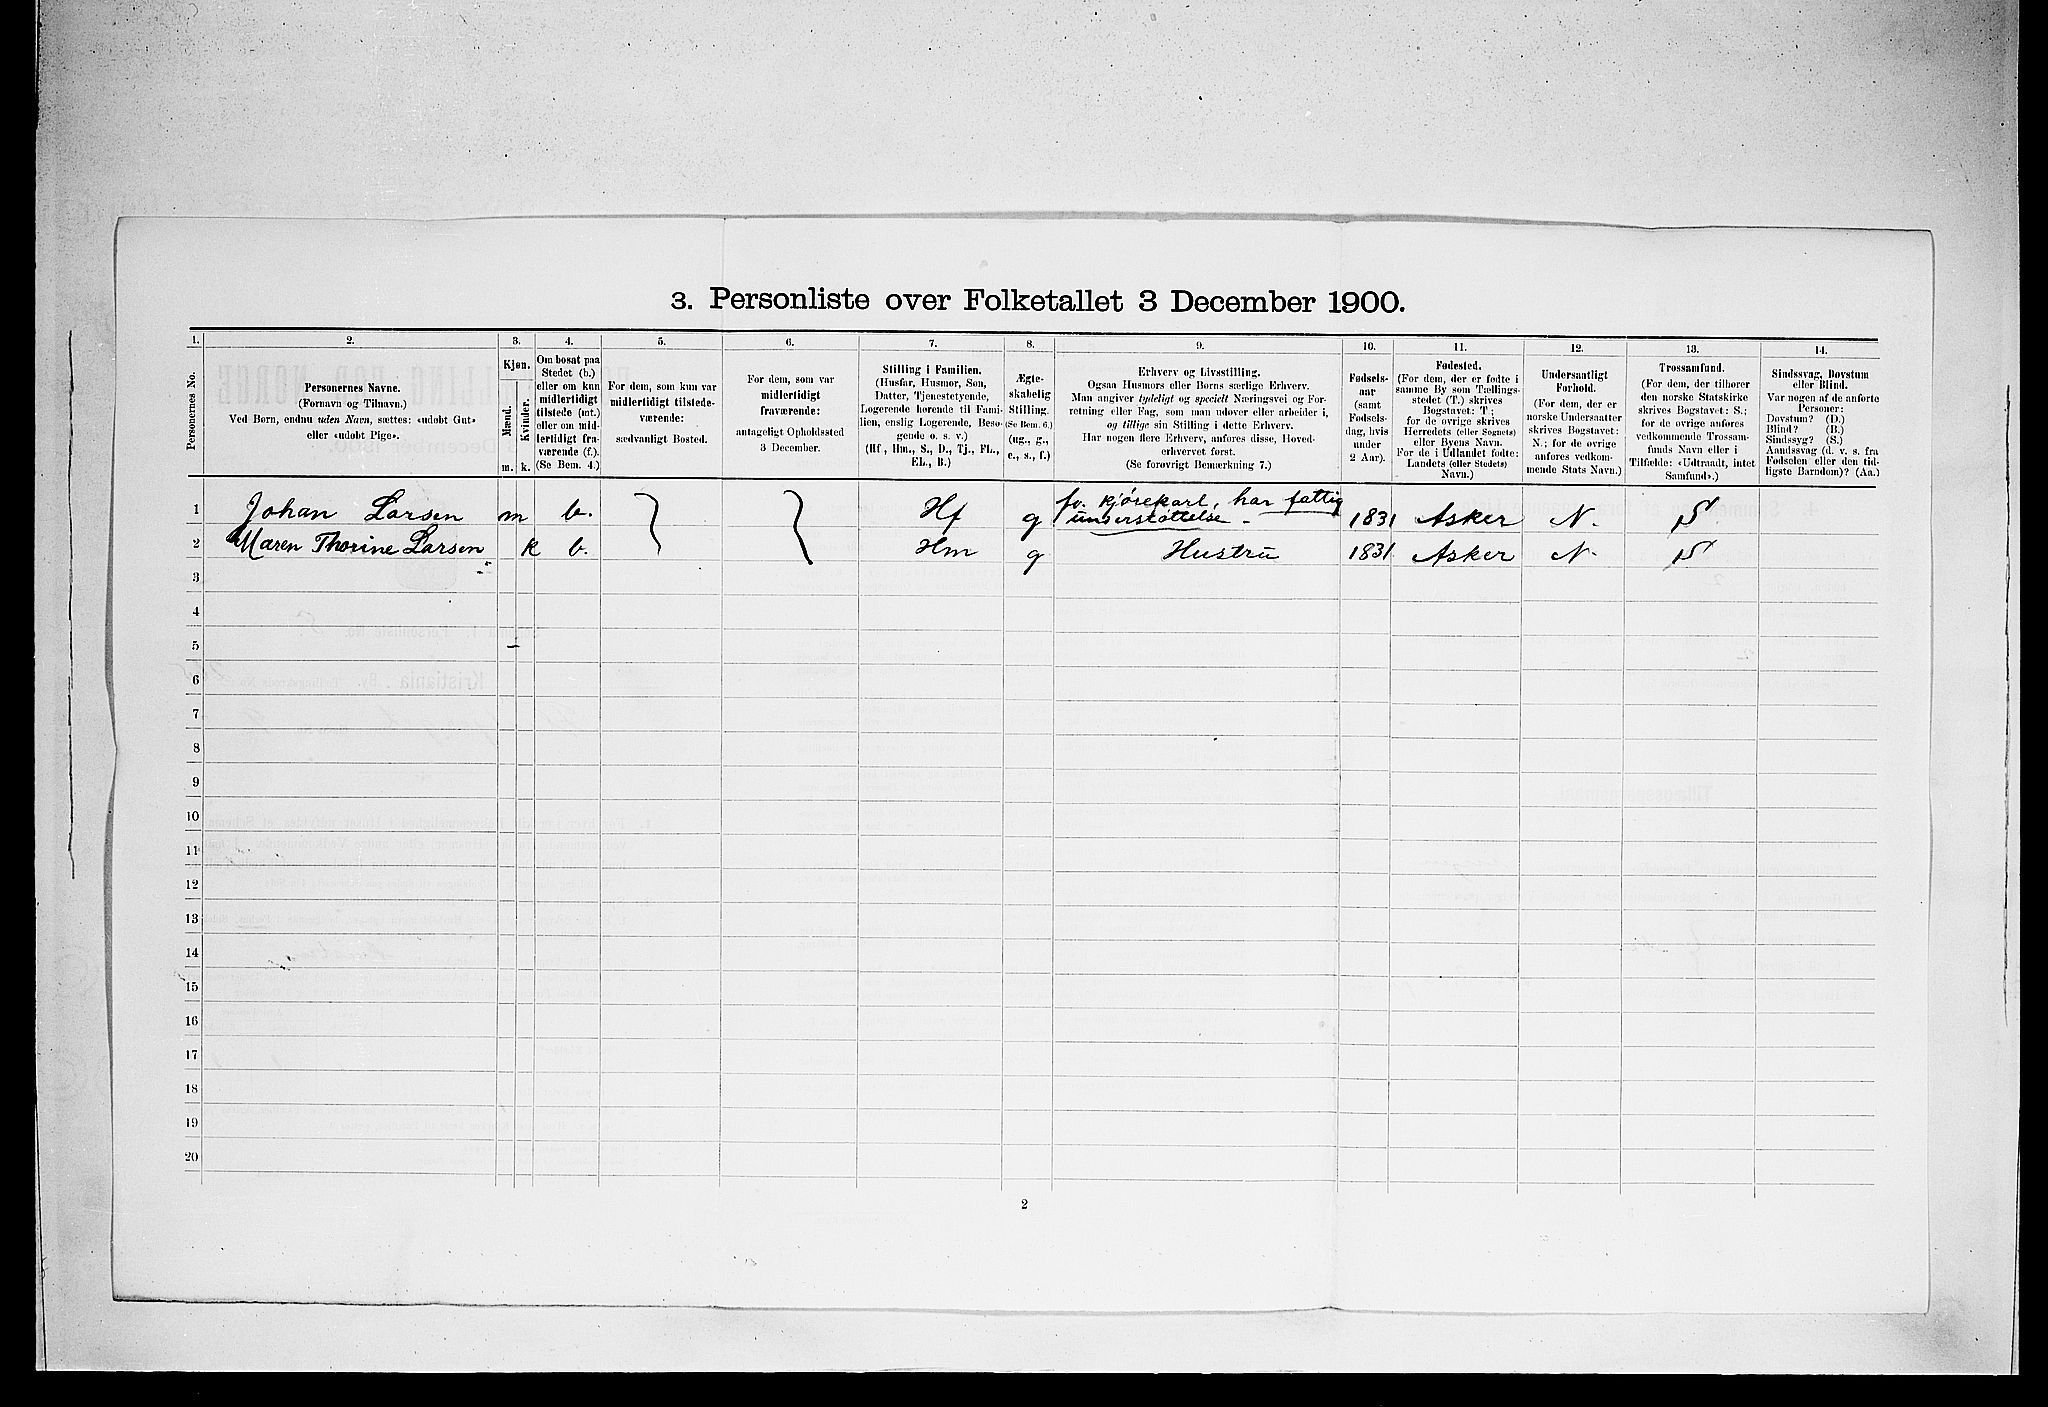 3. Personliste over Folketallet 3 December 1900.
1. 2. 3. 4. 5. 6. 7. 8. 9. 10. 11. 12. 13. 14.
Personernes No.
Personernes Navne.
(Fornavn og Tilnavn.)
Ved Børn, endnu uden Navn, sættes: «udøbt Gut»
eller «udøbt Pige».
Kjøn.
Mænd.
Kvinder.
m. k.
Om bosat paa
Stedet (b.)
eller om kun
midlertidigt
tilstede (mt.)
eller om mid-
lertidigt fra-
værende (f.).
(Se Bem. 4.)
For dem, som kun var
midlertidigt tilstede-
værende:
sædvanligt Bosted.
For dem, som var
midlertidigt
fraværende:
antageligt Opholdssted
3 December.
Stilling i Familien.
(Husfar, Husmor, Søn,
Datter, Tjenestetyende,
Logerende hørende til Fami-
lien, enslig Logerende, Besø-
gende o. s. v.)
(Hf., Hm., S., D., Tj., FL.,
EL., B.)
Ægte-
skabelig
Stilling.
(Se Bem. 6.)
(ug., g.,
e., s., f.)
Erhverv og Livsstilling.
Ogsaa Husmors eller Børns særlige Erhverv.
Man angiver tydeligt og specielt Næringsvei og For-
retning eller Fag, som man udøver eller arbeider i,
og tillige sin Stilling i dette Erhverv.
Har nogen flere Erhverv, anføres disse, Hoved-
erhvervet først.
(Se forøvrigt Bemærkning 7.)
Fødsels-
aar
(samt
Fødsels-
dag, hvis
under
2 Aar).
Fødested.
(For dem, der er fødte i
samme By som Tællings-
stedet (T.) skrives
Bogstavet: T;
for de øvrige skrives
Herredets (eller Sognets)
eller Byens Navn.
For de i Udlandet fødte:
Landets (eller Stedets)
Navn.)
Undersaatligt
Forhold.
(For dem, der er
norske Undersaatter
skrives Bogstavet:
N.; for de øvrige
anføres vedkom-
mende Stats Navn.)
Trossamfund.
(For dem, der tilhører
den norske Statskirke
skrives Bogstavet: S.;
for de øvrige anføres
vedkommende Trossam-
funds Navn eller i
Tilfælde: «Udtraadt, intet
Samfund».)
Sindssvag, Døvstum
eller Blind.
Var nogen af de anførte
Personer:
Døvstum? (D.)
Blind? (B.)
Sindssyg? (S.)
Aandssvag (d. v. s. fra
Fødselen eller den tid-
ligste Barndom)? (Aa.)
1 Johan Larsen m b. Hf g fv. kjørekarl, har fattig
understøttelse - 1831 Asker N. S
2 Maren Thorine Larsen k b. Hm g Hustru 1831 Asker N. S
3
4
5
6
7
8
9
10
11
12
13
14
15
16
17
18
19
20
2